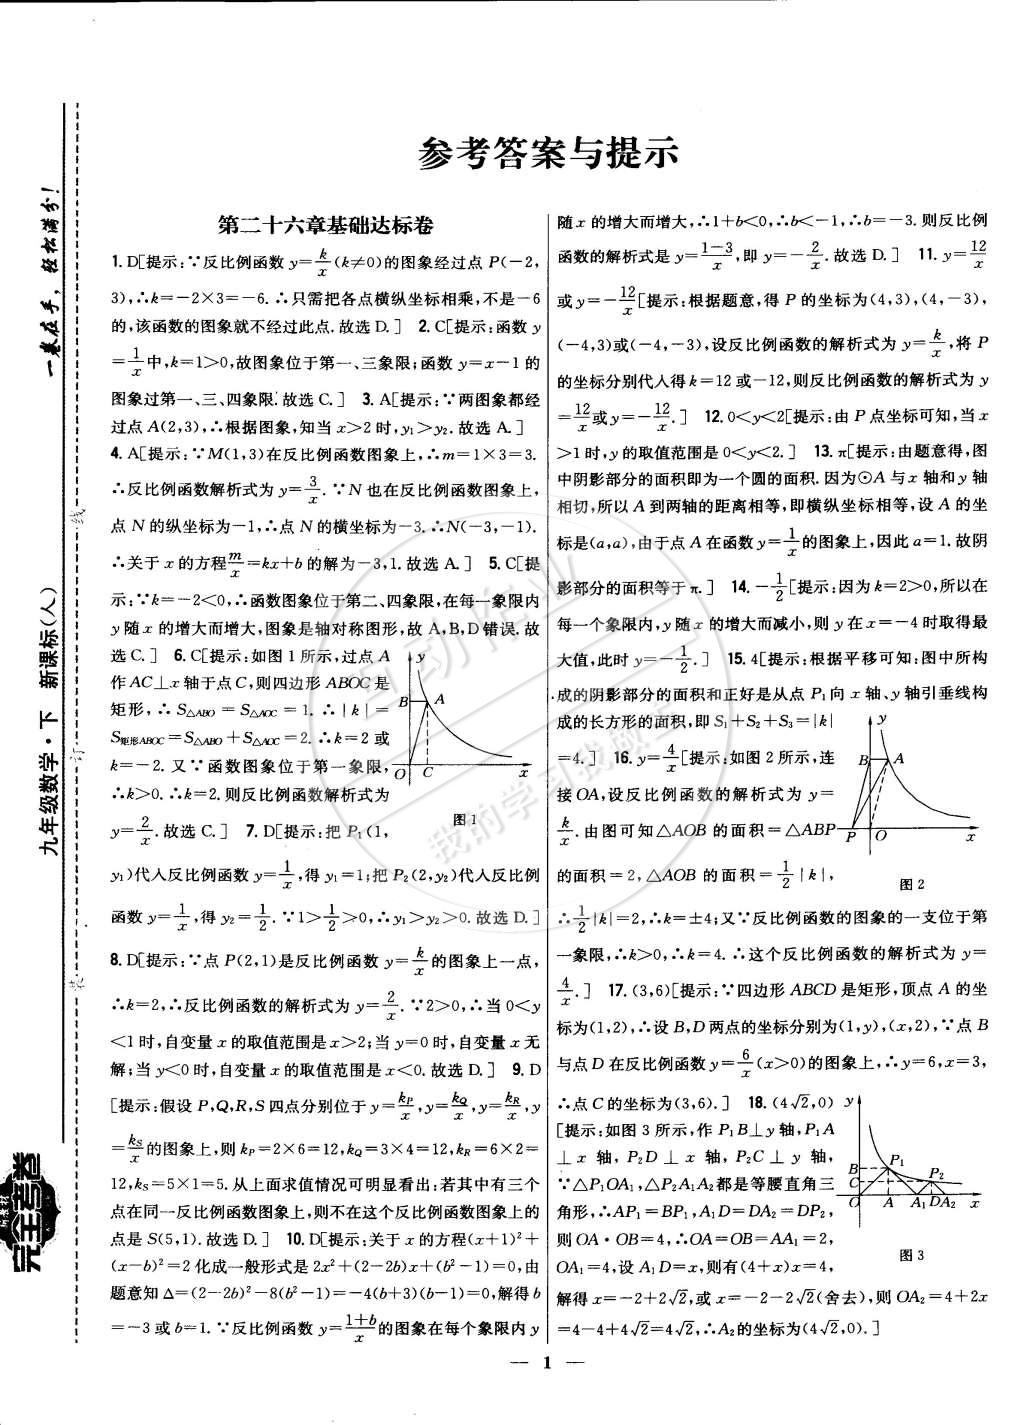 参考答案与提示
第二十六章基础达标卷
1. D[提示:∵反比例函数 y=k/x(k≠0)的图象经过点 P(-2,
3),∴k=-2×3=-6.∴只需把各点横纵坐标相乘,不是-6
的,该函数的图象就不经过此点.故选 D.] 2. C[提示:函数 y
=1/x中,k=1>0,故图象位于第一、三象限;函数 y=x-1 的
图象过第一、三、四象限.故选 C.] 3. A[提示:∵两图象都经
过点 A(2,3),∴根据图象,知当 x>2 时,y₁>y₂.故选 A.]
4. A[提示:∵M(1,3)在反比例函数图象上,∴m=1×3=3.
∴反比例函数解析式为 y=3/x.∵N 也在反比例函数图象上,
点 N 的纵坐标为-1,∴点 N 的横坐标为-3.∴N(-3,-1).
∴关于 x 的方程m/x=kx+b 的解为-3,1.故选 A.] 5. C[提
示:∵k=-2<0,∴函数图象位于第二、四象限,在每一象限内
y 随 x 的增大而增大,图象是轴对称图形,故 A,B,D 错误.故
选 C.] 6. C[提示:如图 1 所示,过点 A
作 AC⊥x 轴于点 C,则四边形 ABOC 是
矩形,∴S△ABO=S△AOC=1.∴|k|=
S矩形ABOC=S△ABO+S△AOC=2.∴k=2 或
k=-2.又∵函数图象位于第一象限,
∴k>0.∴k=2.则反比例函数解析式为
y=2/x.故选 C.] 7. D[提示:把 P₁(1,
y B A O C x
图 1
y₁)代人反比例函数 y=1/x,得 y₁=1;把 P₂(2,y₂)代人反比例
函数 y=1/x,得 y₂=1/2.∵1>1/2>0,∴y₁>y₂>0.故选 D.]
8. D[提示:∵点 P(2,1)是反比例函数 y=k/x的图象上一点,
∴k=2,∴反比例函数的解析式为 y=2/x.∵2>0,∴当 0<y
<1 时,自变量 x 的取值范围是 x>2;当 y=0 时,自变量 x 无
解;当 y<0 时,自变量 x 的取值范围是 x<0.故选 D.] 9. D
[提示:假设 P,Q,R,S 四点分别位于 y=kP/x,y=kQ/x,y=kR/x,y
=kS/x的图象上,则 kP=2×6=12,kQ=3×4=12,kR=6×2=
12,kS=5×1=5.从上面求值情况可明显看出:若其中有三个
点在同一反比例函数图象上,则不在这个反比例函数图象上的
点是 S(5,1).故选 D.] 10. D[提示:关于 x 的方程(x+1)²+
(x-b)²=2 化成一般形式是 2x²+(2-2b)x+(b²-1)=0,由
题意知 Δ=(2-2b)²-8(b²-1)=-4(b+3)(b-1)=0,解得 b
=-3 或 b=1.∵反比例函数 y=1+b/x的图象在每个象限内 y
随 x 的增大而增大,∴1+b<0,∴b<-1,∴b=-3.则反比例
函数的解析式是 y=1-3/x,即 y=-2/x.故选 D.] 11. y=12/x
或 y=-12/x[提示:根据题意,得 P 的坐标为(4,3),(4,-3),
(-4,3)或(-4,-3),设反比例函数的解析式为 y=k/x,将 P
的坐标分别代人得 k=12 或-12,则反比例函数的解析式为 y
=12/x或 y=-12/x.] 12. 0<y<2[提示:由 P 点坐标可知,当 x
>1 时,y 的取值范围是 0<y<2.] 13. π[提示:由题意得,图
中阴影部分的面积即为一个圆的面积.因为⊙A 与 x 轴和 y 轴
相切,所以 A 到两轴的距离相等,即横纵坐标相等,设 A 的坐
标是(a,a),由于点 A 在函数 y=1/x的图象上,因此 a=1.故阴
影部分的面积等于 π.] 14. -1/2[提示:因为 k=2>0,所以在
每一个象限内,y 随 x 的增大而减小,则 y 在 x=-4 时取得最
大值,此时 y=-1/2.] 15. 4[提示:根据平移可知:图中所构
成的阴影部分的面积和正好是从点 P₁向 x 轴、y 轴引垂线构
成的长方形的面积,即 S₁+S₂+S₃=|k|
=4.] 16. y=4/x[提示:如图 2 所示,连
接 OA,设反比例函数的解析式为 y=
k/x.由图可知△AOB 的面积=△ABP
的面积=2,△AOB 的面积=1/2|k|,
y B A P O x
图 2
∴1/2|k|=2,∴k=±4;又∵反比例函数的图象的一支位于第
一象限,∴k>0,∴k=4.∴这个反比例函数的解析式为 y=
4/x.] 17. (3,6)[提示:∵四边形 ABCD 是矩形,顶点 A 的坐
标为(1,2),∴设 B,D 两点的坐标分别为(1,y),(x,2),∵点 B
与点 D 在反比例函数 y=6/x(x>0)的图象上,∴y=6,x=3,
∴点 C 的坐标为(3,6).] 18. (4√2,0)
[提示:如图 3 所示,作 P₁B⊥y 轴,P₁A
⊥x 轴,P₂D⊥x 轴,P₂C⊥y 轴,
∵△P₁OA₁,△P₂A₁A₂都是等腰直角三
角形,∴AP₁=BP₁,A₁D=DA₂=DP₂,
则 OA·OB=4,∴OA=OB=AA₁=2,
OA₁=4,设 A₁D=x,则有(4+x)x=4,
y B P₁ C P₂ O A A₁ D A₂ x
图 3
解得 x=-2+2√2,或 x=-2-2√2(舍去),则 OA₂=4+2x
=4-4+4√2=4√2,∴A₂的坐标为(4√2,0).]
— 1 —
一卷在手,轻松满分!
九年级数学·下 新课标(人)
完全考卷
装 订 线
互动作业
我的学习我做主